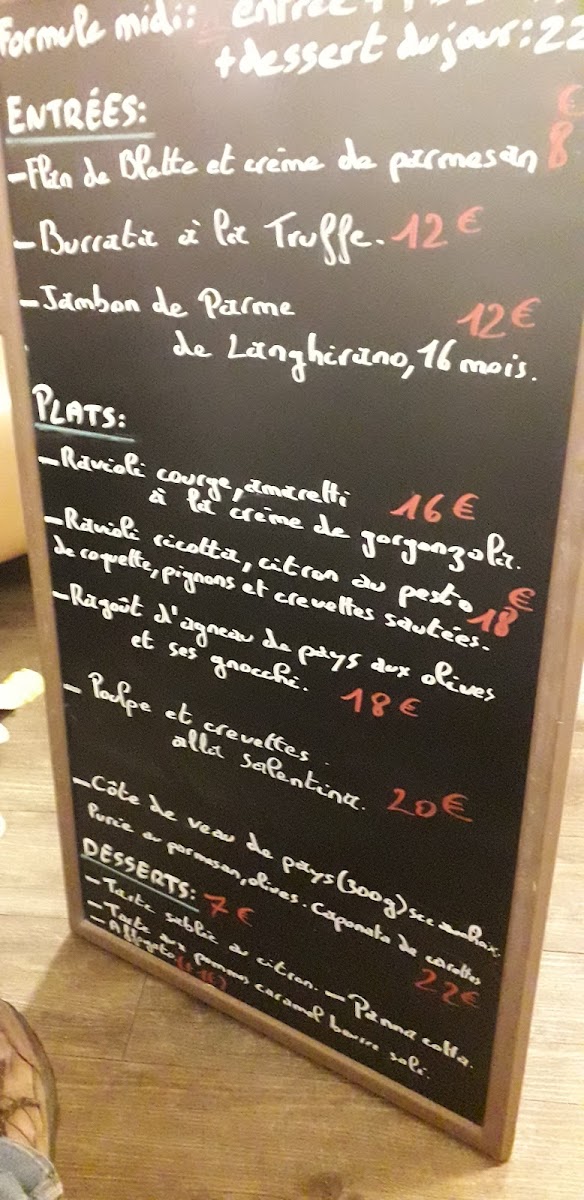 Formule midi: entrée +
+ dessert du jour: 22
ENTRÉES:
€
- Flan de Blette et crème de parmesan 8
- Burrata à la Truffe. 12€
- Jambon de Parme 12€
de Langhirano, 16 mois.
PLATS:
- Ravioli courge, amaretti 16€
à la crème de gorgonzola.
- Ravioli ricotta, citron au pesto €
de roquette, pignons et crevettes sautées. 18
- Ragoût d'agneau de pays aux olives
et ses gnocchi. 18€
- Poulpe et crevettes
alla Salentina. 20€
- Côte de veau de pays (300g)
Purée au parmesan, olives. Caponata de carottes
22€
DESSERTS: 7€
- Tarte sablée au citron. - Panna cotta.
- Tarte aux pommes caramel beurre salé.
- Affogato